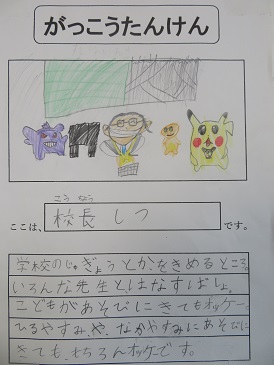 がっこうたんけん
こう ちょう
ここは、校長しつです。
学校のじゅぎょうとかをきめるところ。
いろんな先生とはなすばしょ。
こどもがあそびにきてもオッケー。
ひるやすみや、なかやすみにあそびに
きても、もちろんオッケーです。